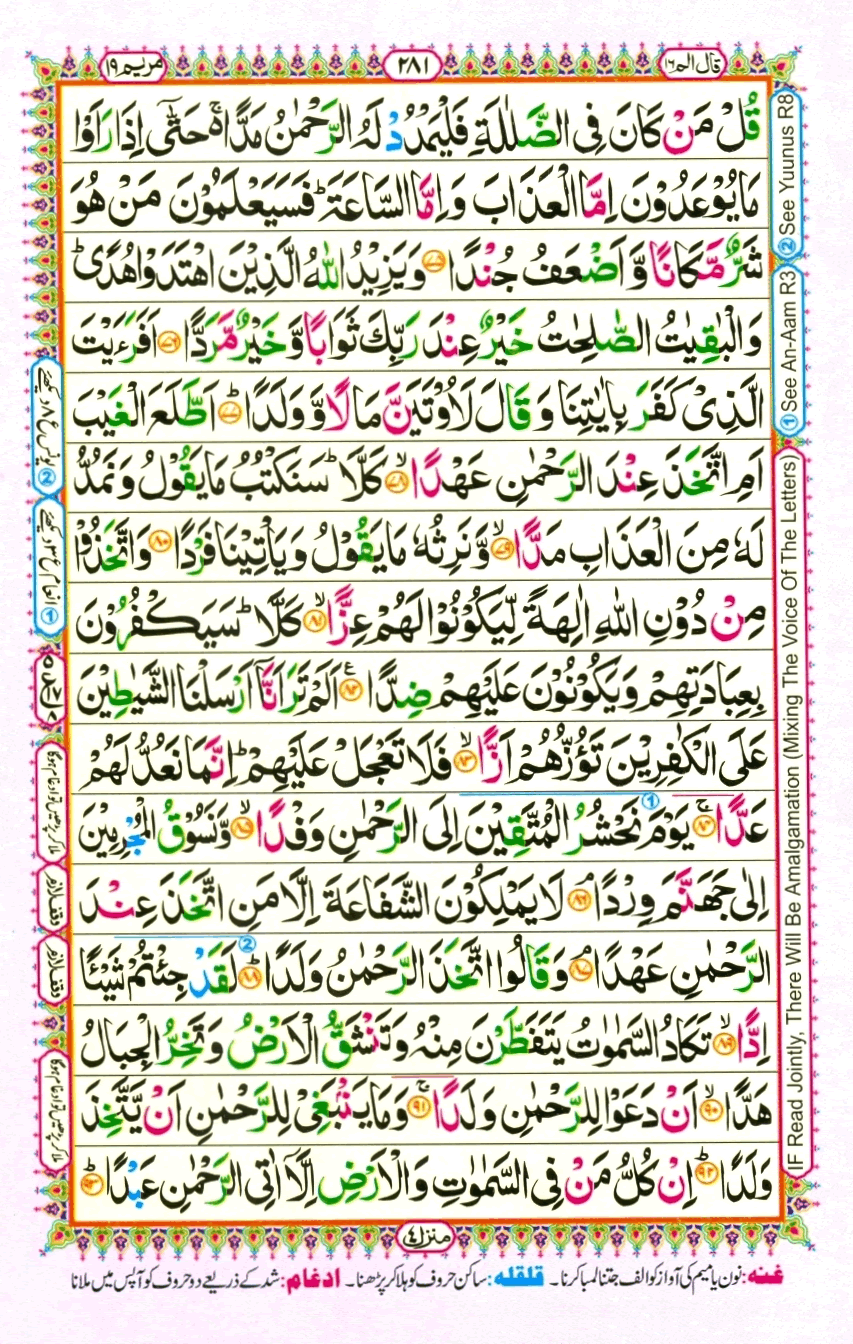 قال الم ١٦
٢٨١
مريم ١٩
قُلْ مَنْ كَانَ فِى الضَّلٰلَةِ فَلْيَمْدُدْ لَهُ الرَّحْمٰنُ مَدًّا ۚ۬ حَتّٰٓى اِذَا رَاَوْا
مَا يُوْعَدُوْنَ اِمَّا الْعَذَابَ وَ اِمَّا السَّاعَةَ ؕ فَسَيَعْلَمُوْنَ مَنْ هُوَ
شَرٌّ مَّكَانًا وَّ اَضْعَفُ جُنْدًا ﴿۷۵﴾ وَ يَزِيْدُ اللّٰهُ الَّذِيْنَ اهْتَدَوْا هُدًى ؕ
وَ الْبٰقِيٰتُ الصّٰلِحٰتُ خَيْرٌ عِنْدَ رَبِّكَ ثَوَابًا وَّ خَيْرٌ مَّرَدًّا ﴿۷۶﴾ اَفَرَءَيْتَ
الَّذِىْ كَفَرَ بِاٰيٰتِنَا وَ قَالَ لَاُوْتَيَنَّ مَالًا وَّ وَلَدًا ﴿ؕ۷۷﴾ اَطَّلَعَ الْغَيْبَ
اَمِ اتَّخَذَ عِنْدَ الرَّحْمٰنِ عَهْدًا ﴿ۙ۷۸﴾ كَلَّا ؕ سَنَكْتُبُ مَا يَقُوْلُ وَ نَمُدُّ
لَهٗ مِنَ الْعَذَابِ مَدًّا ﴿ۙ۷۹﴾ وَّ نَرِثُهٗ مَا يَقُوْلُ وَ يَاْتِيْنَا فَرْدًا ﴿۸۰﴾ وَ اتَّخَذُوْا
مِنْ دُوْنِ اللّٰهِ اٰلِهَةً لِّيَكُوْنُوْا لَهُمْ عِزًّا ﴿ۙ۸۱﴾ كَلَّا ؕ سَيَكْفُرُوْنَ
بِعِبَادَتِهِمْ وَ يَكُوْنُوْنَ عَلَيْهِمْ ضِدًّا ﴿۸۲﴾ اَلَمْ تَرَ اَنَّاۤ اَرْسَلْنَا الشَّيٰطِيْنَ
عَلَى الْكٰفِرِيْنَ تَؤُزُّهُمْ اَزًّا ﴿ۙ۸۳﴾ فَلَا تَعْجَلْ عَلَيْهِمْ ؕ اِنَّمَا نَعُدُّ لَهُمْ
عَدًّا ﴿ۚ۸۴﴾ يَوْمَ نَحْشُرُ الْمُتَّقِيْنَ اِلَى الرَّحْمٰنِ وَفْدًا ﴿ۙ۸۵﴾ وَّ نَسُوْقُ الْمُجْرِمِيْنَ
اِلٰى جَهَنَّمَ وِرْدًا ﴿ۘ۸۶﴾ لَا يَمْلِكُوْنَ الشَّفَاعَةَ اِلَّا مَنِ اتَّخَذَ عِنْدَ
الرَّحْمٰنِ عَهْدًا ﴿ۘ۸۷﴾ وَ قَالُوا اتَّخَذَ الرَّحْمٰنُ وَلَدًا ﴿ؕ۸۸﴾ لَقَدْ جِئْتُمْ شَيْئًا
اِدًّا ﴿ۙ۸۹﴾ تَكَادُ السَّمٰوٰتُ يَتَفَطَّرْنَ مِنْهُ وَ تَنْشَقُّ الْاَرْضُ وَ تَخِرُّ الْجِبَالُ
هَدًّا ﴿ۙ۹۰﴾ اَنْ دَعَوْا لِلرَّحْمٰنِ وَلَدًا ﴿ۚ۹۱﴾ وَ مَا يَنْۢبَغِىْ لِلرَّحْمٰنِ اَنْ يَّتَّخِذَ
وَلَدًا ﴿ؕ۹۲﴾ اِنْ كُلُّ مَنْ فِى السَّمٰوٰتِ وَ الْاَرْضِ اِلَّاۤ اٰتِى الرَّحْمٰنِ عَبْدًا ﴿ؕ۹۳﴾
② See Yuunus R8
① See An-Aam R3
IF Read Jointly, There Will Be Amalgamation (Mixing The Voice Of The Letters)
② یونس ع ۸ دیکھئے
① انعام ع ۳ دیکھئے
ملا کر پڑھیں تو ادغام ہوگا
وقف لازم
وقف لازم
ملا کر پڑھیں تو ادغام ہوگا
منزل ٤
غنہ: نون یا میم کی آواز کو الف جتنا لمبا کرنا۔ قلقلہ: ساکن حروف کو ہلا کر پڑھنا۔ ادغام: شد کے ذریعے دو حروف کو آپس میں ملانا